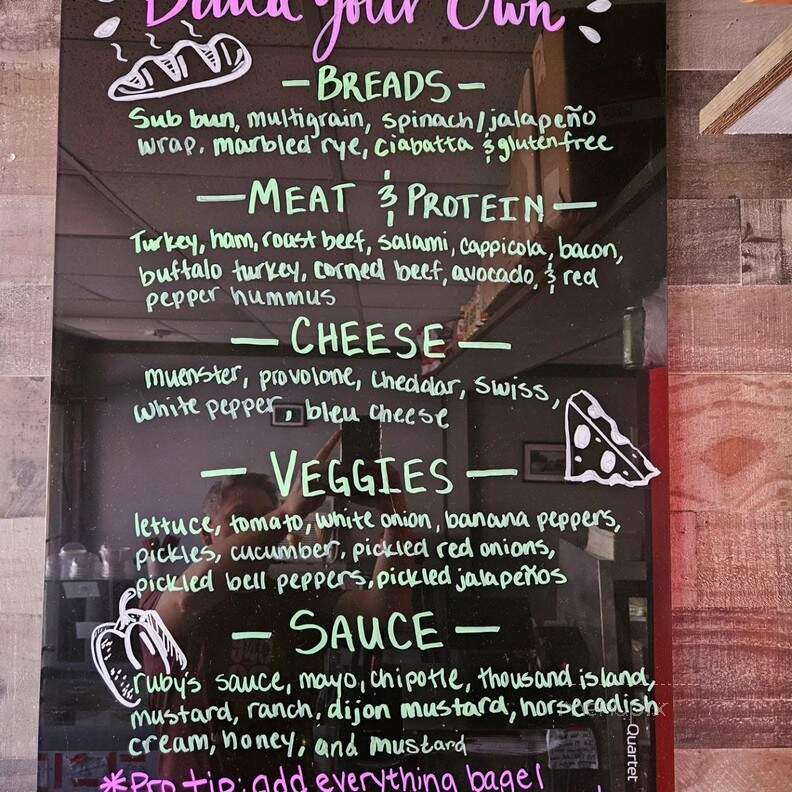 Build Your Own
- BREADS -
Sub bun, multigrain, spinach/jalapeño
wrap, marbled rye, ciabatta & gluten-free
- MEAT & PROTEIN -
Turkey, ham, roast beef, salami, cappicola, bacon,
buffalo turkey, corned beef, avocado, & red
pepper hummus
- CHEESE -
muenster, provolone, cheddar, swiss,
white pepper, bleu cheese
- VEGGIES -
lettuce, tomato, white onion, banana peppers,
pickles, cucumber, pickled red onions,
pickled bell peppers, pickled jalapeños
- SAUCE -
ruby's sauce, mayo, chipotle, thousand island,
mustard, ranch, dijon mustard, horseradish
cream, honey, and mustard
*Pro tip: add everything bagel
Quartet